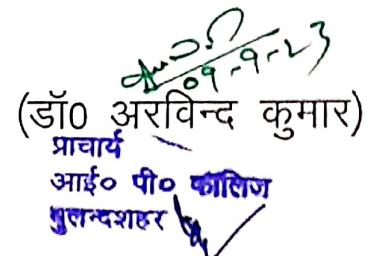 09-9-23
(डॉ0 अरविन्द कुमार)
प्राचार्य
आई० पी० कालिज
बुलन्दशहर